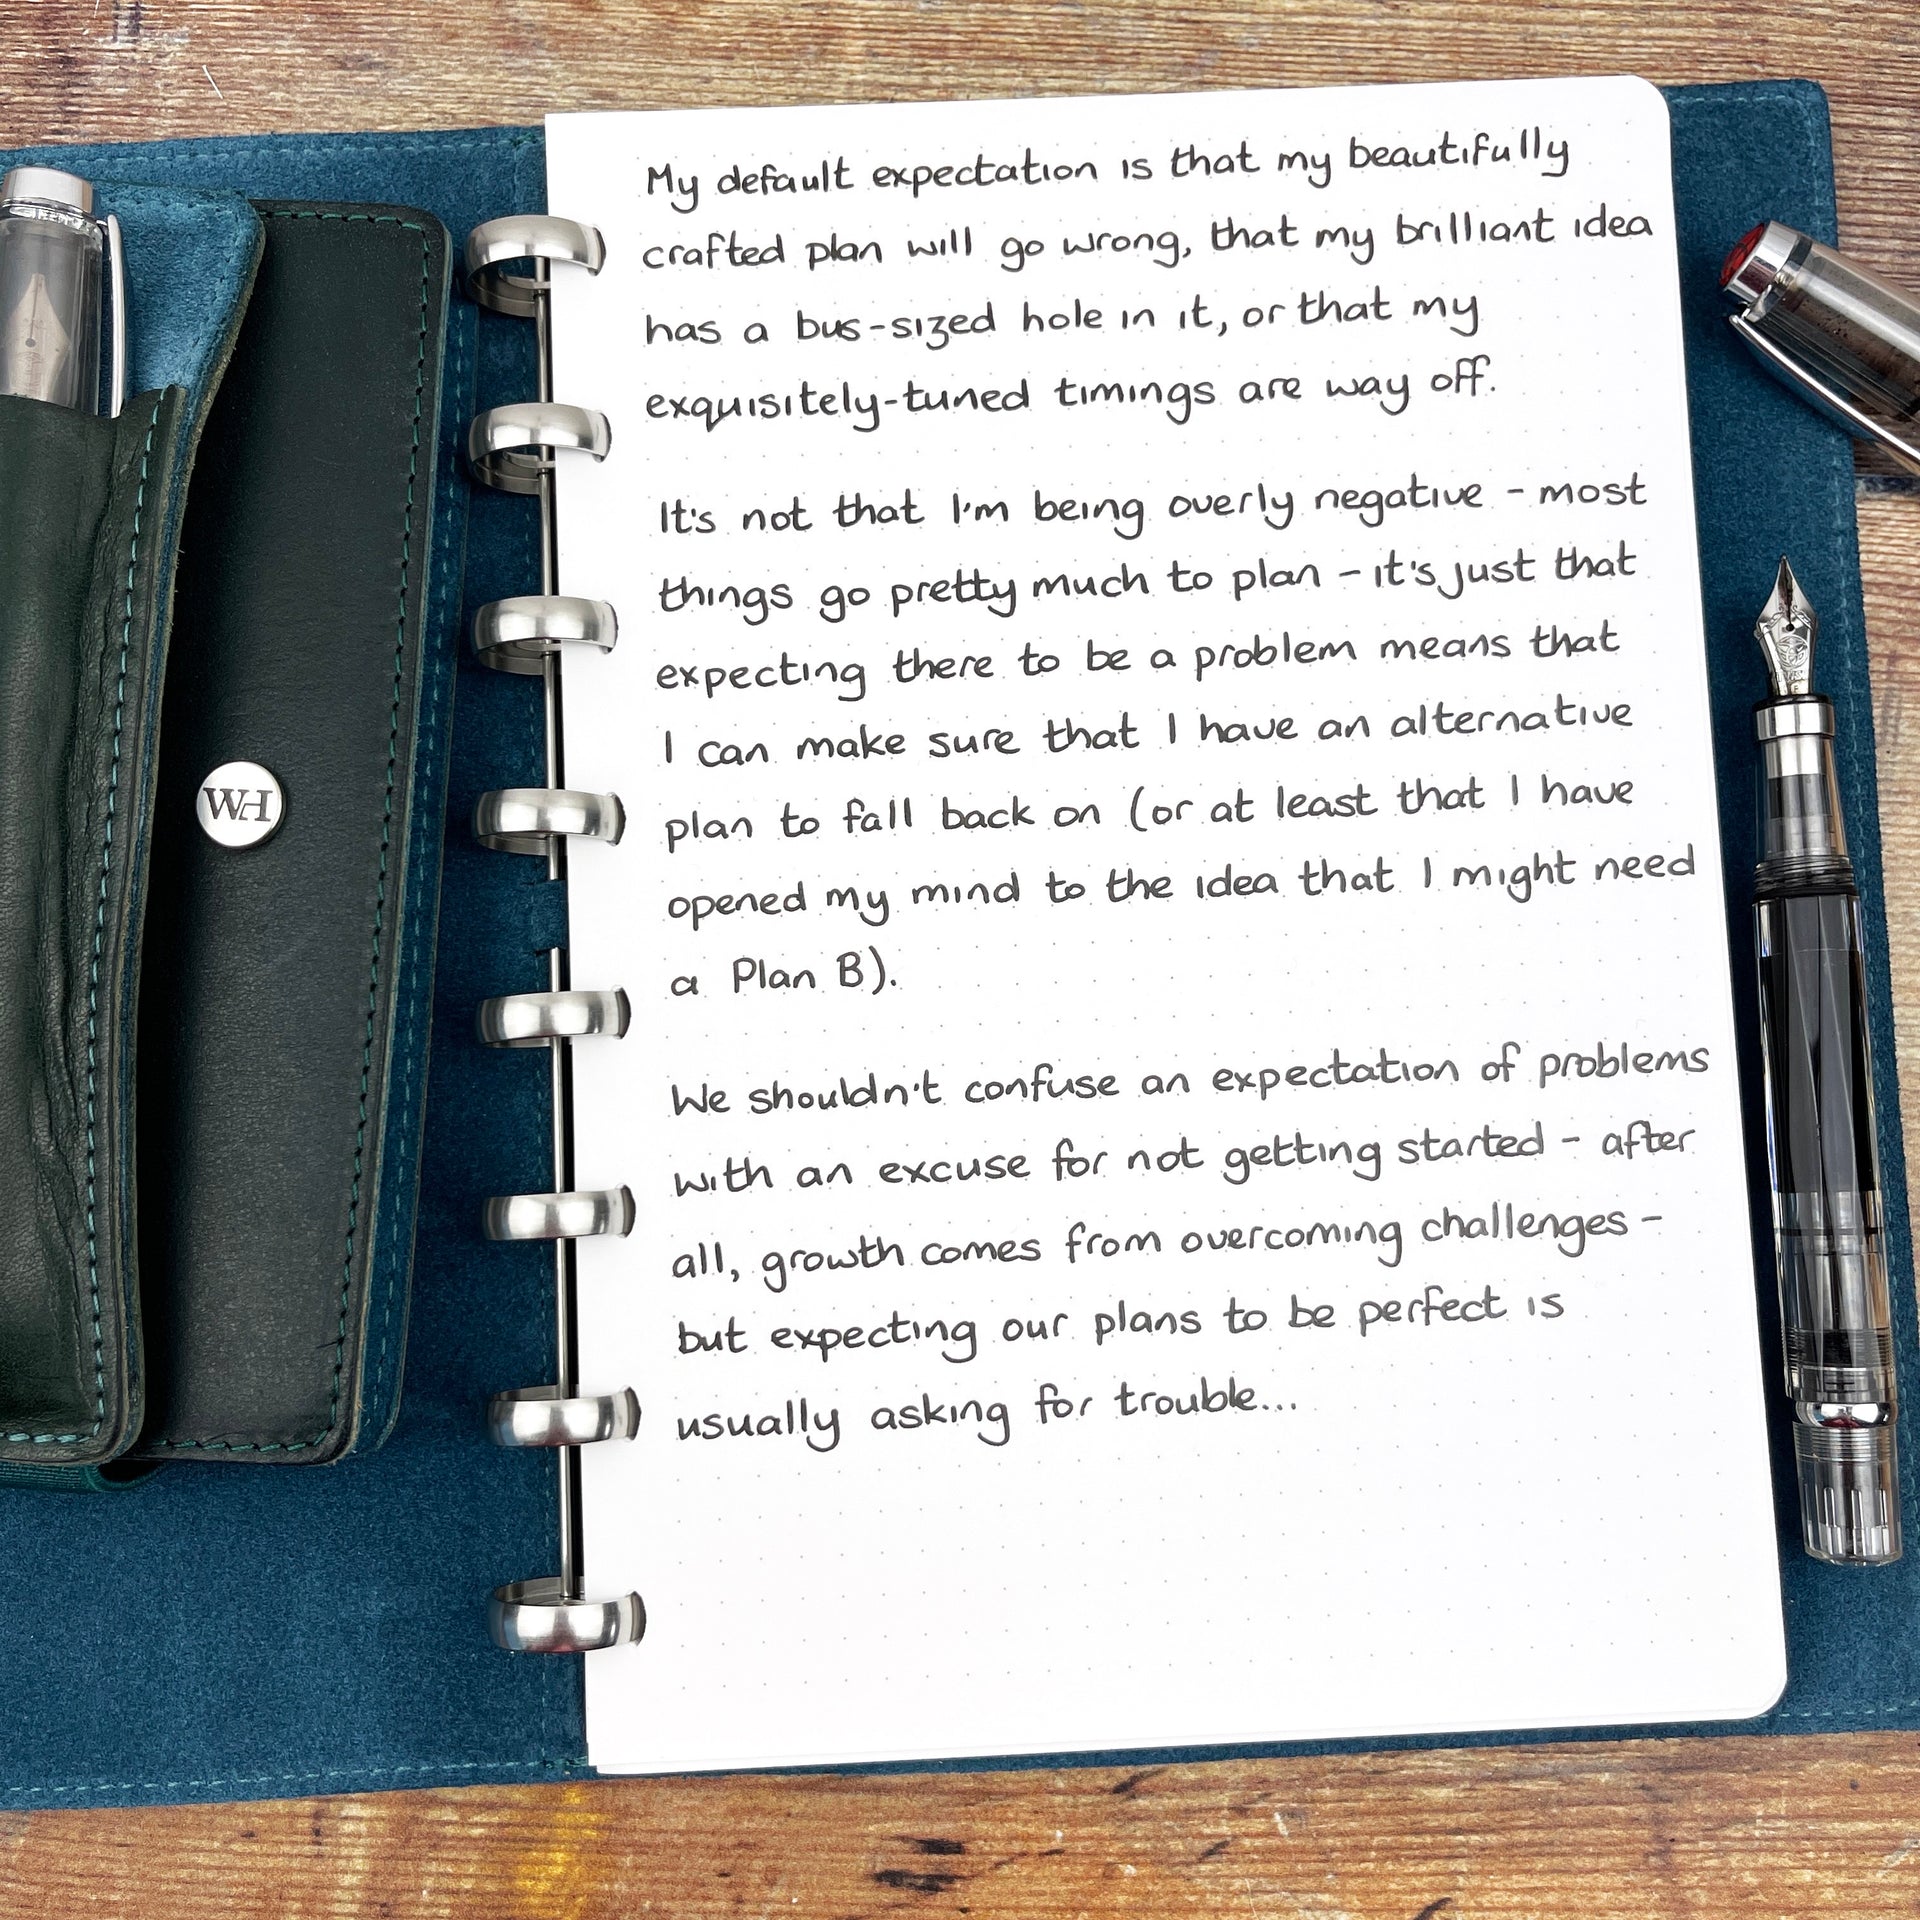 WH
My default expectation is that my beautifully
crafted plan will go wrong, that my brilliant idea
has a bus-sized hole in it, or that my
exquisitely-tuned timings are way off.
It's not that I'm being overly negative - most
things go pretty much to plan - it's just that
expecting there to be a problem means that
I can make sure that I have an alternative
plan to fall back on (or at least that I have
opened my mind to the idea that I might need
a Plan B).
We shouldn't confuse an expectation of problems
with an excuse for not getting started - after
all, growth comes from overcoming challenges -
but expecting our plans to be perfect is
usually asking for trouble...